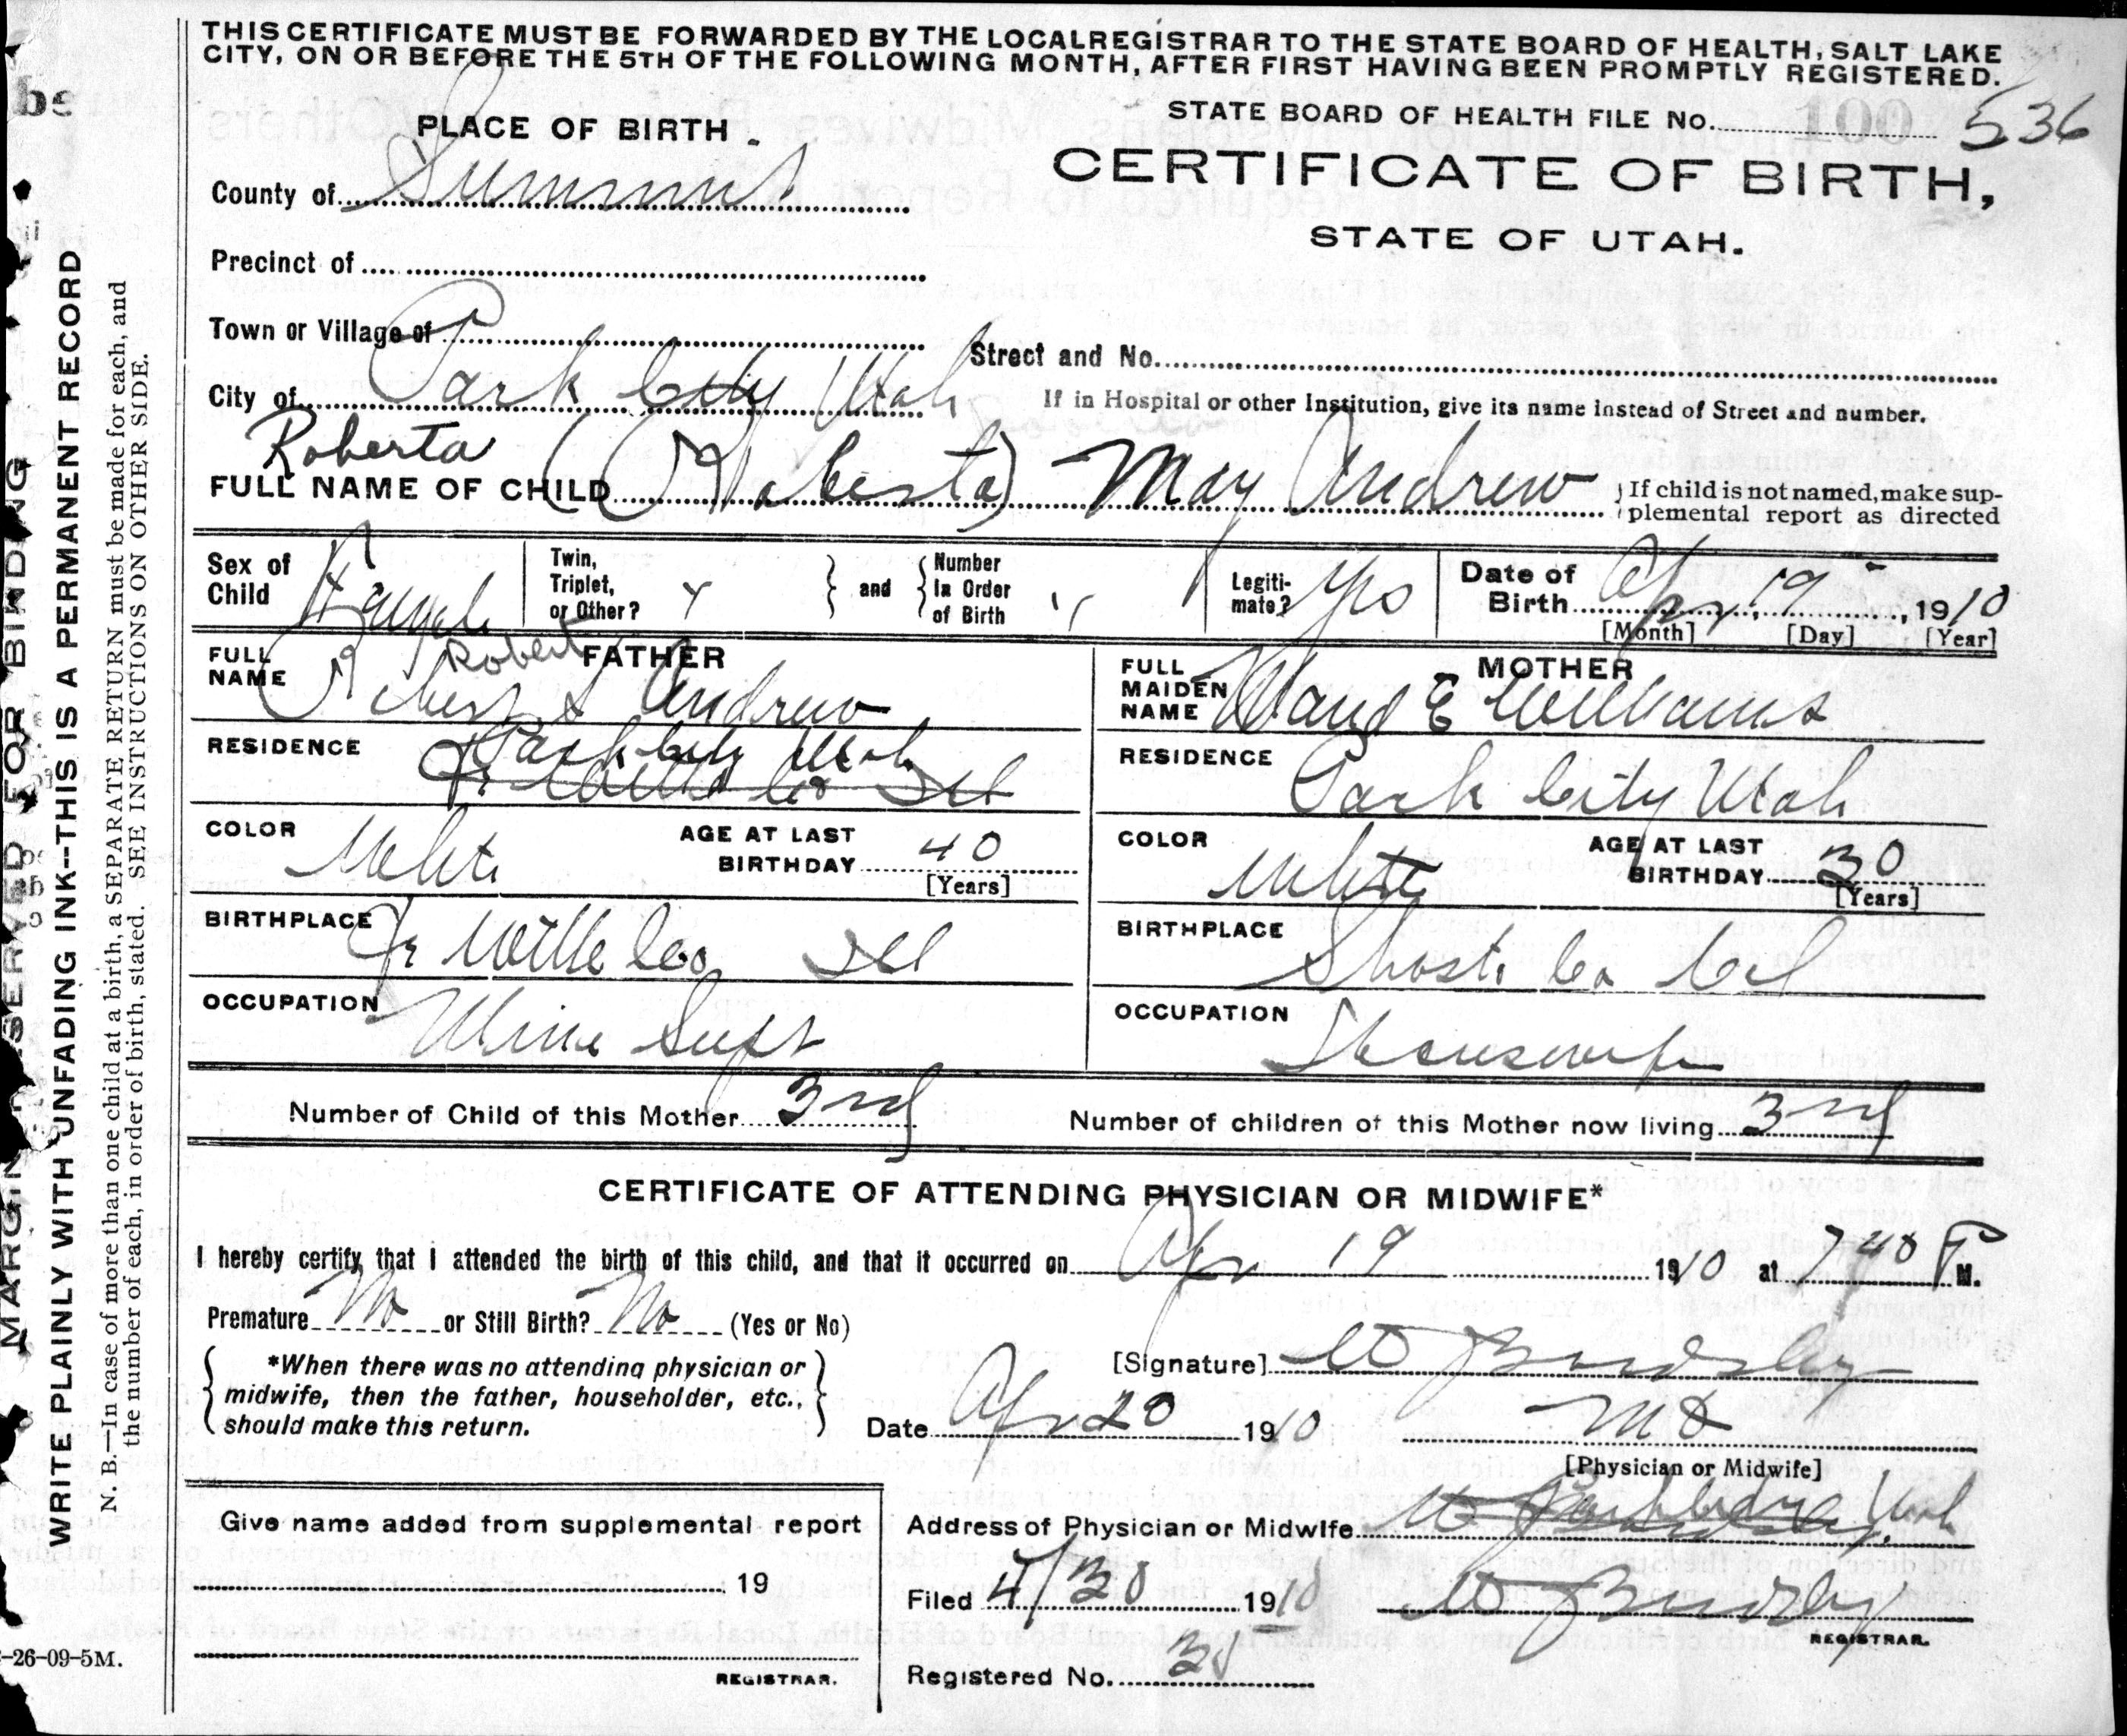 THIS CERTIFICATE MUST BE FORWARDED BY THE LOCAL REGISTRAR TO THE STATE BOARD OF HEALTH, SALT LAKE
CITY, ON OR BEFORE THE 5TH OF THE FOLLOWING MONTH, AFTER FIRST HAVING BEEN PROMPTLY REGISTERED.
STATE BOARD OF HEALTH FILE No. 100 536
PLACE OF BIRTH
CERTIFICATE OF BIRTH,
STATE OF UTAH.
County of Summit
Precinct of
Town or Village of
Street and No.
City of Park City Utah
If in Hospital or other Institution, give its name instead of Street and number.
Roberta
FULL NAME OF CHILD (Roberta) May Andrew
If child is not named, make sup-
plemental report as directed
Sex of Child Female
Twin, Triplet, or Other?
and
Number In Order of Birth
Legiti-mate? Yes
Date of Birth Apr 19, 1910
[Month] [Day] [Year]
FATHER
Robert
FULL NAME Robert Andrew
RESIDENCE Park City Utah
COLOR White
AGE AT LAST BIRTHDAY 40
[Years]
BIRTHPLACE Co Ill
OCCUPATION Mine Supt
MOTHER
FULL MAIDEN NAME Maud E Williams
RESIDENCE Park City Utah
COLOR White
AGE AT LAST BIRTHDAY 30
[Years]
BIRTHPLACE Shasta Co Cal
OCCUPATION Housewife
Number of Child of this Mother 3rd
Number of children of this Mother now living 3rd
CERTIFICATE OF ATTENDING PHYSICIAN OR MIDWIFE*
I hereby certify, that I attended the birth of this child, and that it occurred on Apr 19 1910 at 740 P M.
Premature No or Still Birth? No (Yes or No)
*When there was no attending physician or
midwife, then the father, householder, etc.,
should make this return.
[Signature]
Date Apr 20 1910
M D
[Physician or Midwife]
Give name added from supplemental report
19
REGISTRAR.
Address of Physician or Midwife Utah
Filed 4/30 1910
REGISTRAR.
Registered No.
-26-09-5M.
MARGIN RESERVED FOR BINDING
WRITE PLAINLY WITH UNFADING INK--THIS IS A PERMANENT RECORD
N. B.—In case of more than one child at a birth, a SEPARATE RETURN must be made for each, and
the number of each, in order of birth, stated. SEE INSTRUCTIONS ON OTHER SIDE.